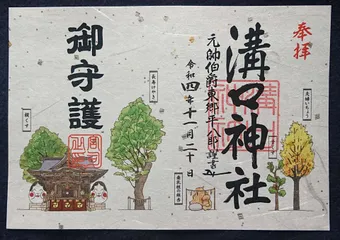 奉拝
溝口神社
元帥伯爵東郷平八郎謹書
令和四年十一月二十日
御守護